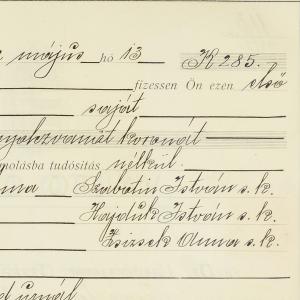 május hó 13 K 285.
fizessen Ön ezen első
saját
koronát
molásba tudósítás nélkül.
Szabatin István s. k.
Hajduk István s. k.
Zsizsek Anna s. k.